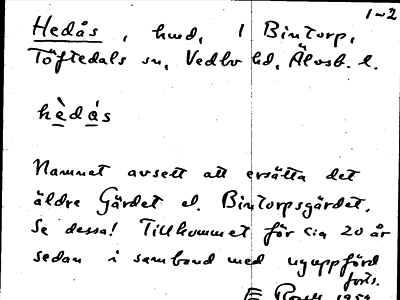 1-2
Hedås, hmd, 1 Bintorp,
Töftedals sn, Vedbo hd, Älvsb. l.
hèdás
Namnet avsett att ersätta det
äldre Gärdet el. Bintorpsgärdet.
Se dessa! Tillkommet för cia 20 år
sedan i samband med nyuppförd
forts.
1954